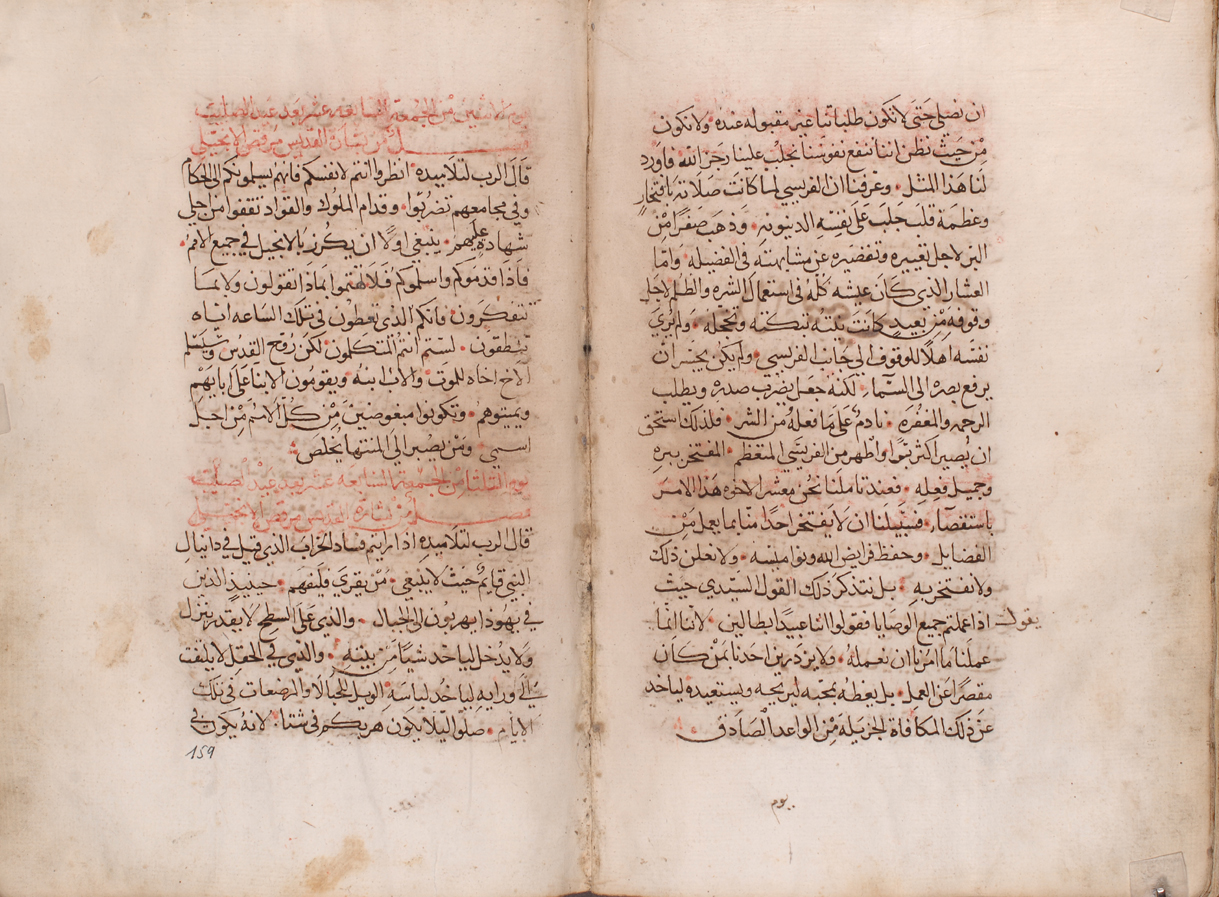 ان نصلي حتى لا تكون طلباتنا غير مقبوله عنده • ولا نكون
من حيث نظن اننا ننفع نفوسنا نجلب علينا رجز الله • فاورد
لنا هذا المثل • وعرفنا ان الفريسي لما كانت صلاته بافتخار
وعظمة قلب جلب على نفسه الدينونه • وذهب صفرًا من
البر لاجل تعييره وتقصيره عن مشابهته في الفضيله • واما
العشار الذي كان عيشه كله في استعمال الشره والظلم لاجل
وقوفه من بعيد كانت نيته تبكته وتخجله • ولم يري
نفسه اهلاً للوقوف الي جانب الفريسي • ولم يكن يجسر ان
يرفع بصره الي السماء • لكنه جعل يضرب صدره ويطلب
الرحمه والمغفره • نادم على ما فعله من الشر • فلذلك استحق
ان يصير اكثر برًا واطهر من الفريسي المتعظم • المفتخر ببره
وجميل فعله • فعند تاملنا نحن معشر الاخوه هذا الامر
باستقصاء • فسبيلنا ان لا يفتخر احدًا منا بما يعمل من
الفضايل • وحفظ فرايض الله ونواميسه • ولا نعلن ذلك
ولا نفتخر به • بل نتذكر ذلك القول السيدي حيث
يقول اذا عملتم جميع الوصايا فقولوا اننا عبيدًا بطالين • لاننا انما
عملنا ما امرنا ان نعمله • ولا يزدرين احدنا بمن كان
مقصرًا عن العمل • بل يعظه بمحبه ليربحه ويستعيده لياخد
عن ذلك المكافاة الجزيله من الواعد الصادق •
يوم
يوم الاثنين من الجمعة السابعه عشر بعد عيد الصليب
فصل من بشارة القديس مرقص الانجيلي
قال الرب لتلاميذه • انظروا انتم لانفسكم فانهم يسلمونكم الى الحكام
وفي مجامعهم تضربوا • وقدام الملوك والقواد تقفوا من اجلي
شهادة عليهم • ينبغي اولاً ان يكرز بالانجيل في جميع الامم •
فاذا قدموكم واسلموكم فلا تهتموا بماذا تقولون ولا بما
تتفكرون • فانكم الذي تعطون في تلك الساعه اياه
تنطقون • لستم انتم المتكلمون • لكن روح القدس وسيسلم
الاخ اخاه للموت • والاب ابنه • ويقومون الابنا على ابايهم
ويميتوهم • وتكونوا مبغوضين من كل الامم من اجل
اسمي • ومن يصبر الي المنتها يخلص •
يوم الثلثا من الجمعة السابعه عشر بعد عيد الصليب
فصل من بشارة القديس مرقص الانجيلي
قال الرب لتلاميذه اذا رايتم فساد الخراب الذي قيل في دانيال
النبي قايمٌ حيث لا ينبغي • من يقري فليفهم • حينيذٍ الذين
في يهودا يهربون الى الجبال • والذي على السطح لا يقدر ينزل
ولا يدخل لياخد شيًا من بيته • والذي في الحقل لا يلتفت
الي ورايه لياخُد لباسه • الويل للحبالا والمرضعات في تلك
الايام • صلوا ليلا يكون هربكم في شتا • لانه يكون في
159